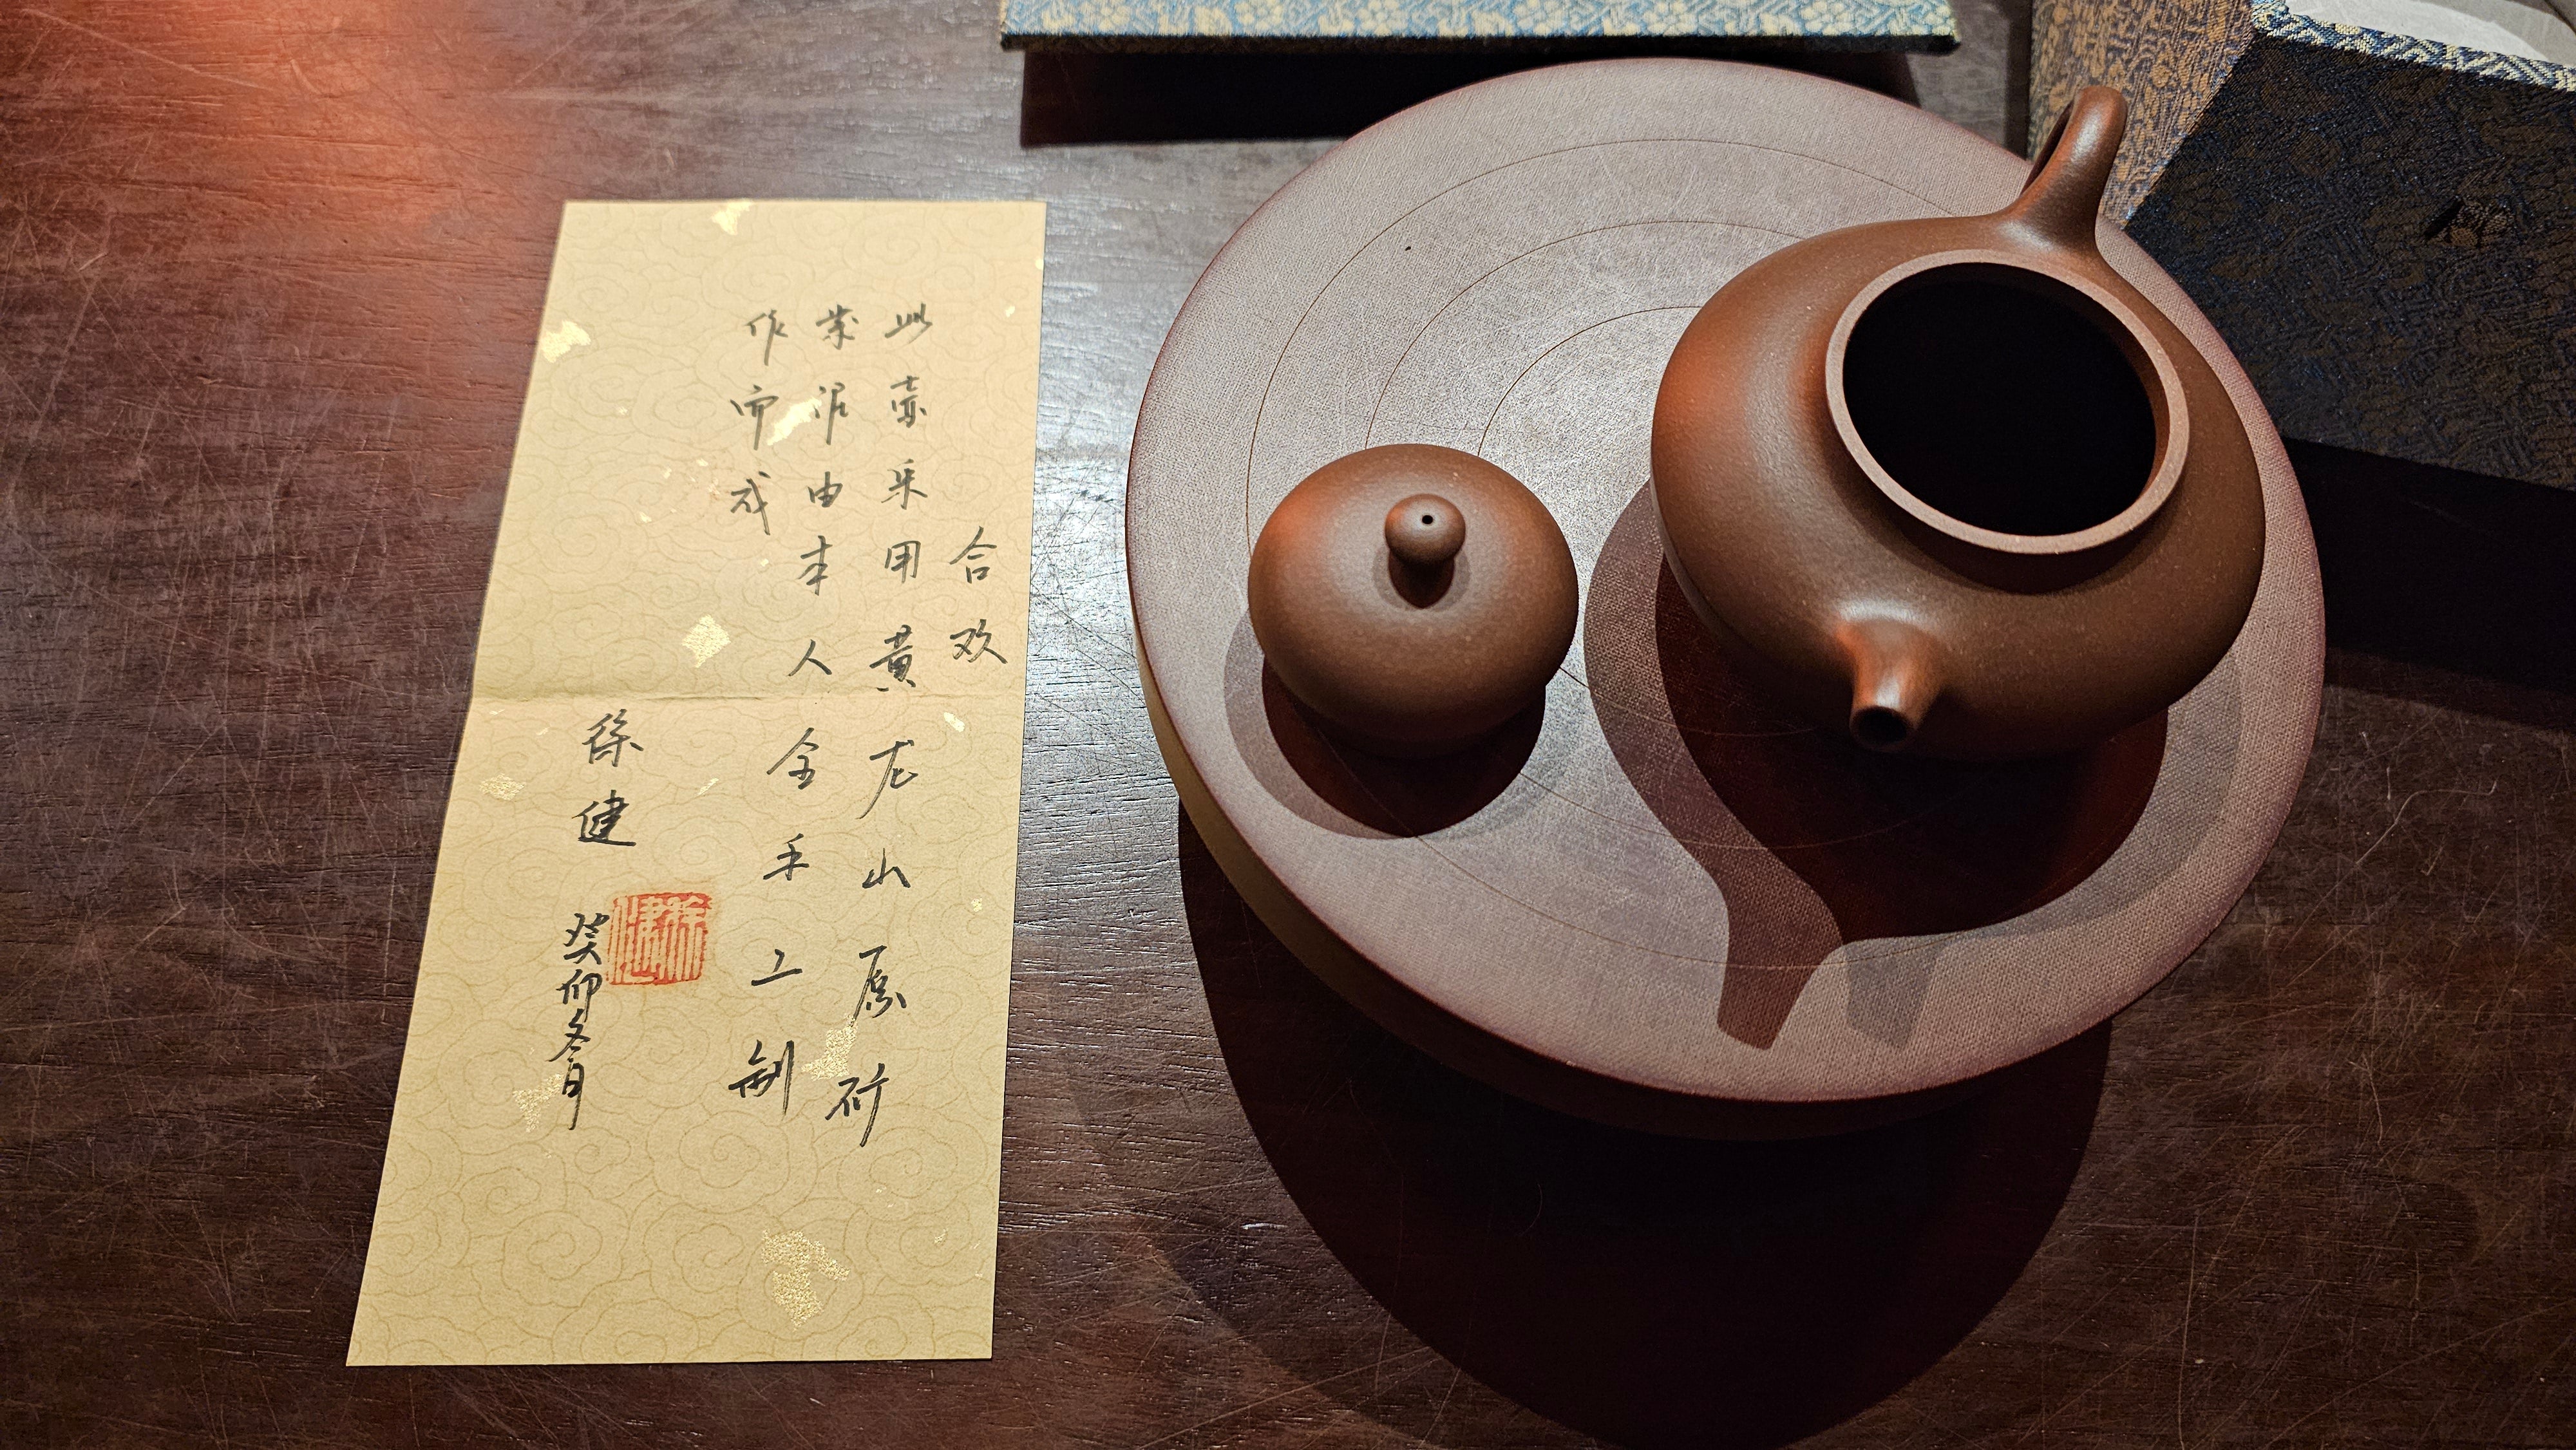 合欢
此壶采用黄龙山原矿
紫泥由本人全手工制
作而成
徐健
癸卯冬月
徐健